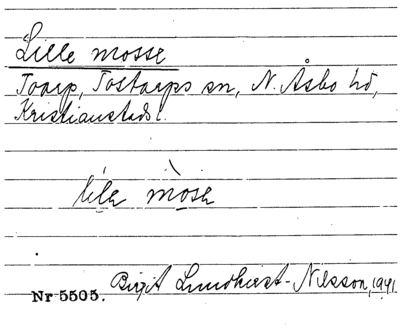 Lille mosse
Toarp, Tostarps sn, N. Åsbo hd,
Kristianstads l.
lilɘ mosɘ
Birgit Lundkvist-Nilsson, 1941
Nr 5505.